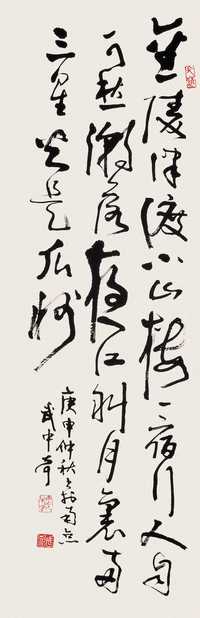 金陵津渡小山楼一宿行人自
可愁潮落夜江斜月裏两
三星火是瓜洲
庚申仲秋於南京
武中奇